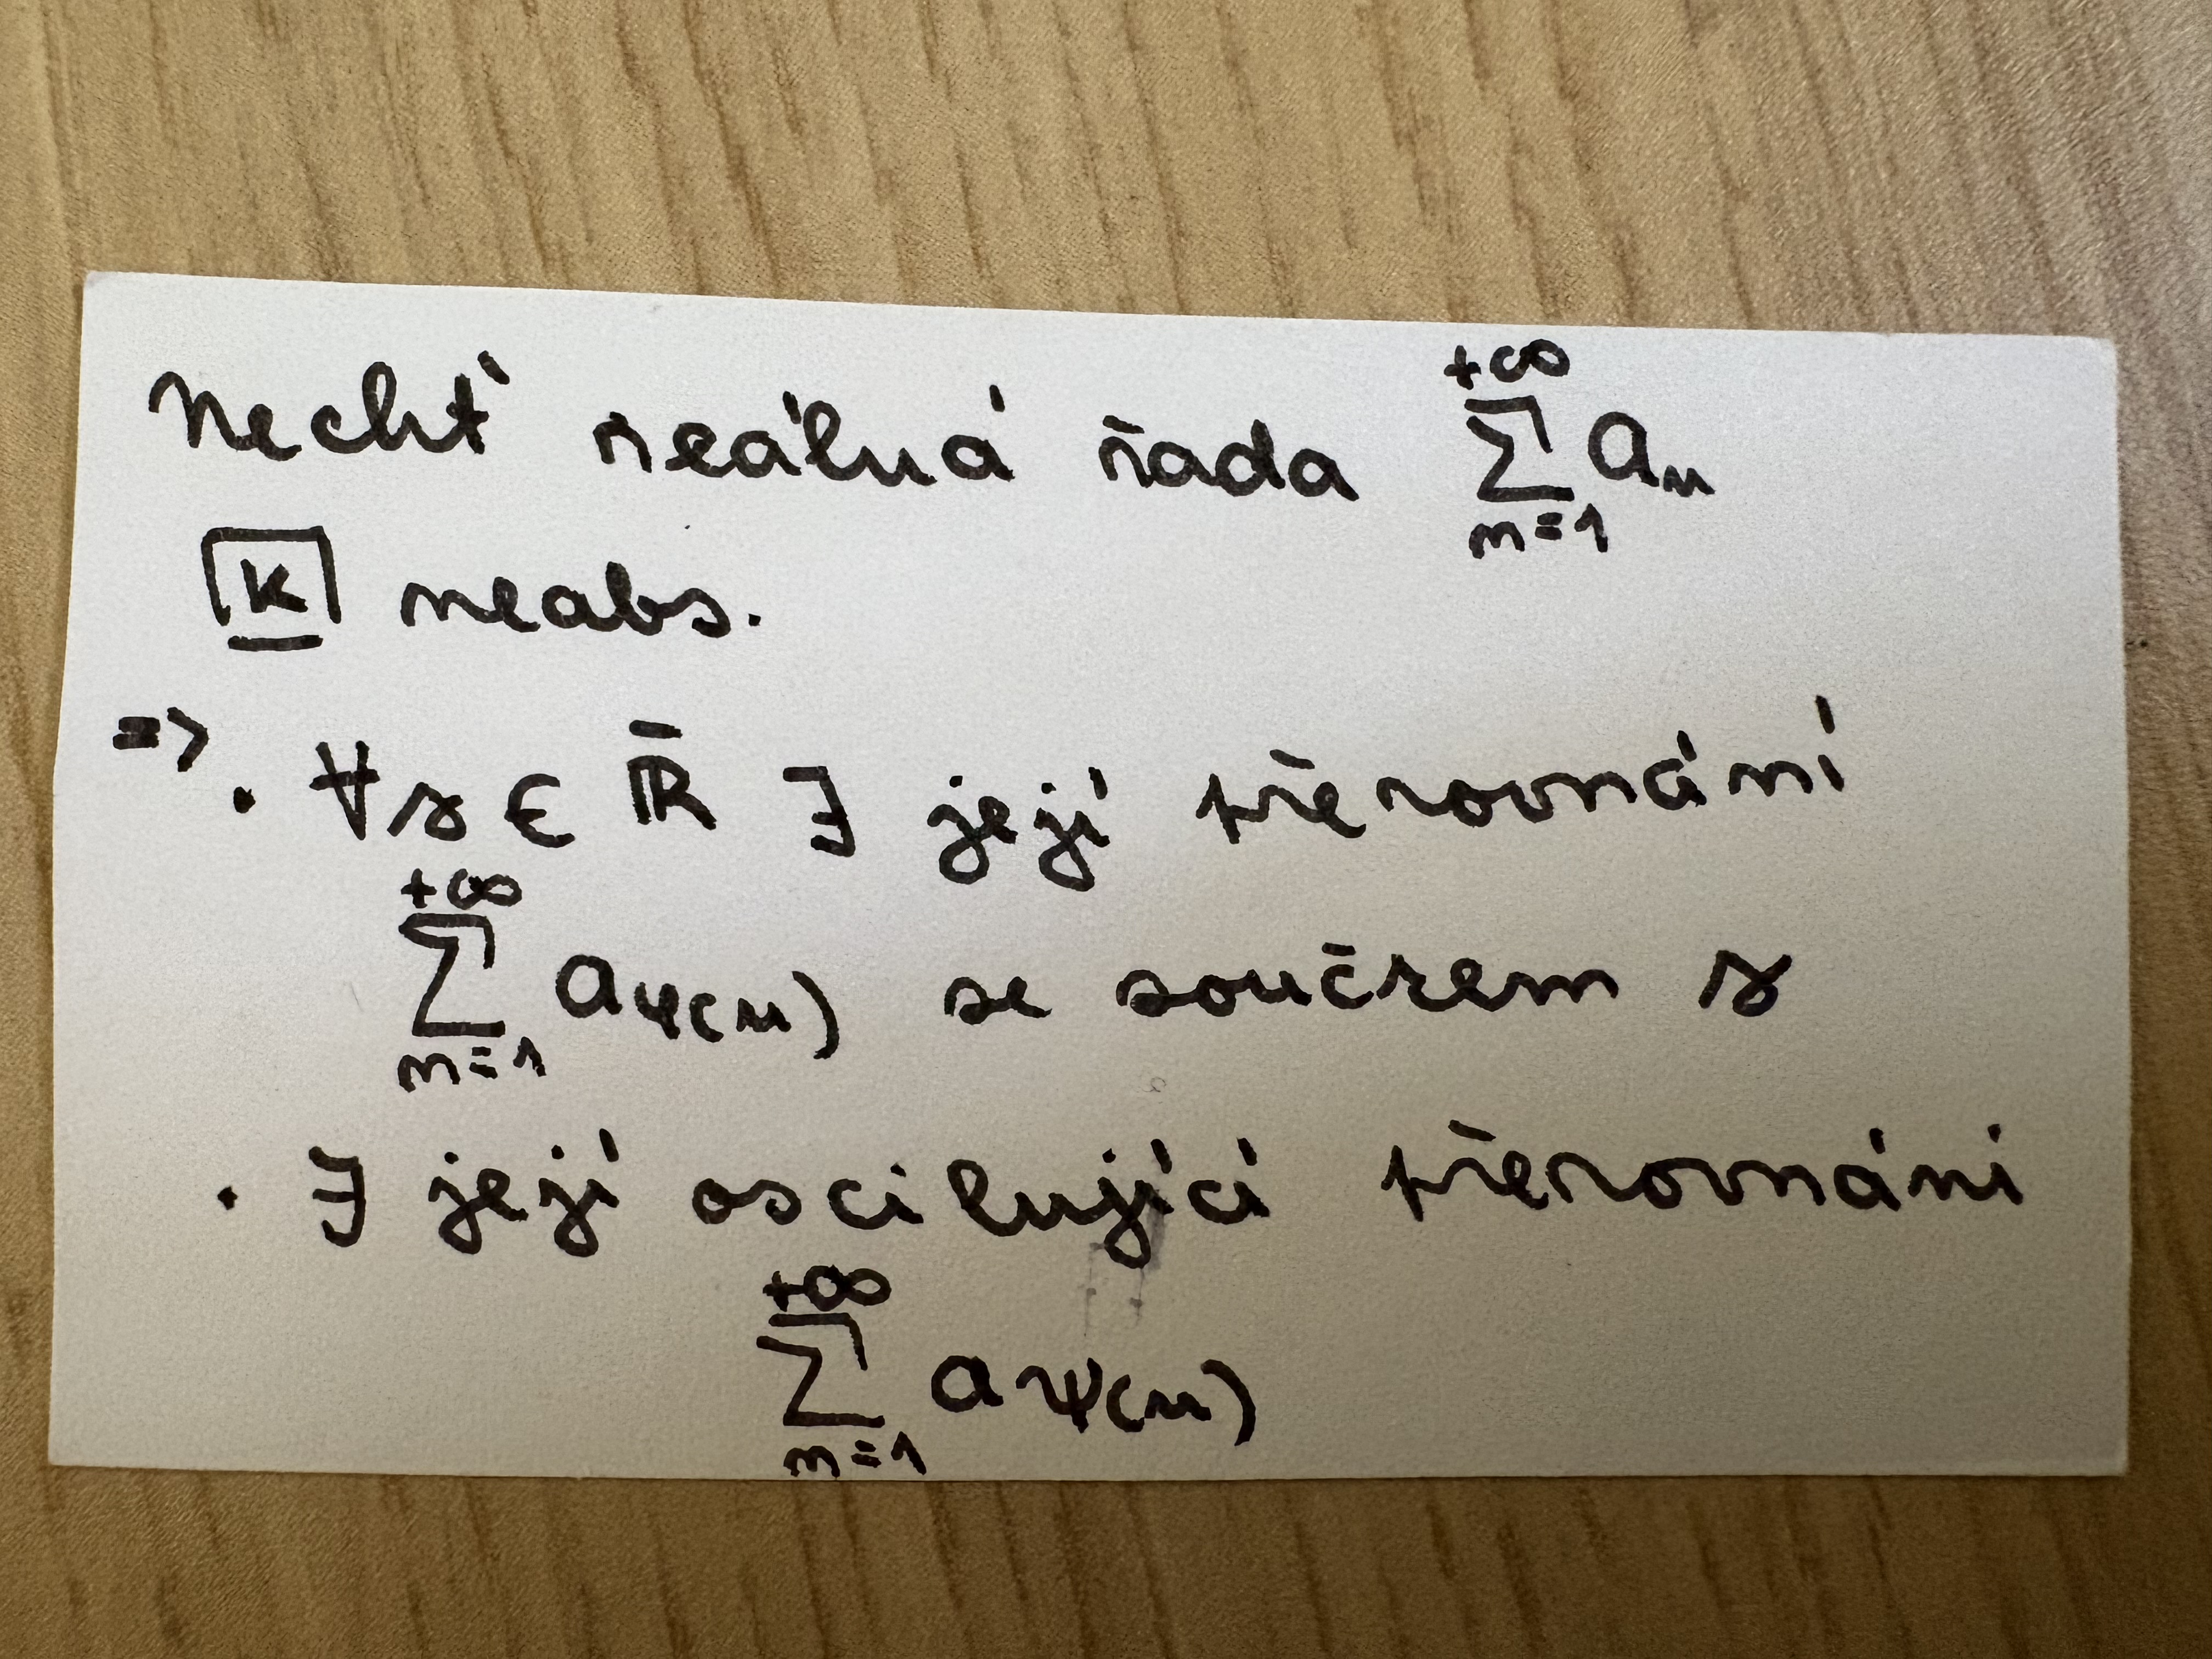 Nechť reálná řada $\sum_{n=1}^{+\infty} a_n$
$\boxed{K}$ neabs.
⇒ • ∀s ∈ $\bar{\mathbb{R}}$ ∃ její přerovnání
$\sum_{n=1}^{+\infty} a_{\varphi(n)}$ se součtem s
• ∃ její oscilující přerovnání
$\sum_{n=1}^{+\infty} a_{\psi(n)}$